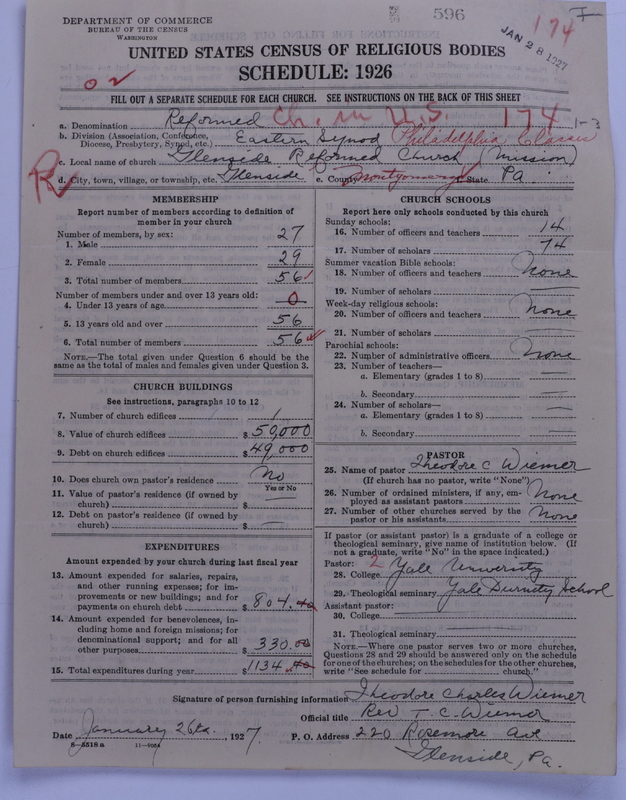 DEPARTMENT OF COMMERCE
BUREAU OF THE CENSUS
WASHINGTON
596
JAN 28 1927
174
I
UNITED STATES CENSUS OF RELIGIOUS BODIES
SCHEDULE: 1926
FILL OUT A SEPARATE SCHEDULE FOR EACH CHURCH. SEE INSTRUCTIONS ON THE BACK OF THIS SHEET
a. Denomination Reformed Ch. in U.S. 174 1-3
b. Division (Association, Conference, Diocese, Presbytery, Synod, etc.) Eastern Synod Philadelphia Classis
c. Local name of church Glenside Reformed Church (Mission)
d. City, town, village, or township, etc. Glenside e. County Montgomery State Pa
MEMBERSHIP
Report number of members according to definition of
member in your church
Number of members, by sex:
1. Male 27
2. Female 29
3. Total number of members 56
Number of members under and over 13 years old:
4. Under 13 years of age 0
5. 13 years old and over 56
6. Total number of members 56
NOTE.—The total given under Question 6 should be the
same as the total of males and females given under Question 3.
CHURCH BUILDINGS
See instructions, paragraphs 10 to 12
7. Number of church edifices 1
8. Value of church edifices $50,000
9. Debt on church edifices $49,000
10. Does church own pastor's residence No
Yes or No
11. Value of pastor's residence (if owned by
church) $
12. Debt on pastor's residence (if owned by
church) $
EXPENDITURES
Amount expended by your church during last fiscal year
13. Amount expended for salaries, repairs,
and other running expenses; for im-
provements or new buildings; and for
payments on church debt $804.40
14. Amount expended for benevolences, in-
cluding home and foreign missions; for
denominational support; and for all
other purposes 330.00
15. Total expenditures during year $1134.40
CHURCH SCHOOLS
Report here only schools conducted by this church
Sunday schools:
16. Number of officers and teachers 14
17. Number of scholars 74
Summer vacation Bible schools:
18. Number of officers and teachers None
19. Number of scholars
Week-day religious schools:
20. Number of officers and teachers None
21. Number of scholars
Parochial schools:
22. Number of administrative officers None
23. Number of teachers—
a. Elementary (grades 1 to 8)
b. Secondary
24. Number of scholars—
a. Elementary (grades 1 to 8)
b. Secondary
PASTOR
25. Name of pastor Theodore C Wiemer
(If church has no pastor, write "None")
26. Number of ordained ministers, if any, em-
ployed as assistant pastors None
27. Number of other churches served by the
pastor or his assistants None
If pastor (or assistant pastor) is a graduate of a college or
theological seminary, give name of institution below. (If
not a graduate, write "No" in the space indicated.)
Pastor: 2
28. College Yale University
29. Theological seminary Yale Divinity School
Assistant pastor:
30. College
31. Theological seminary
NOTE.—Where one pastor serves two or more churches,
Questions 28 and 29 should be answered only on the schedule
for one of the churches; on the schedules for the other churches,
write "See schedule for church."
Signature of person furnishing information Theodore Charles Wiemer
Official title Rev T. C. Wiemer
Date January 26th, 1927. P. O. Address 220 Rosemore Ave
8-5518 a
Glenside, Pa.